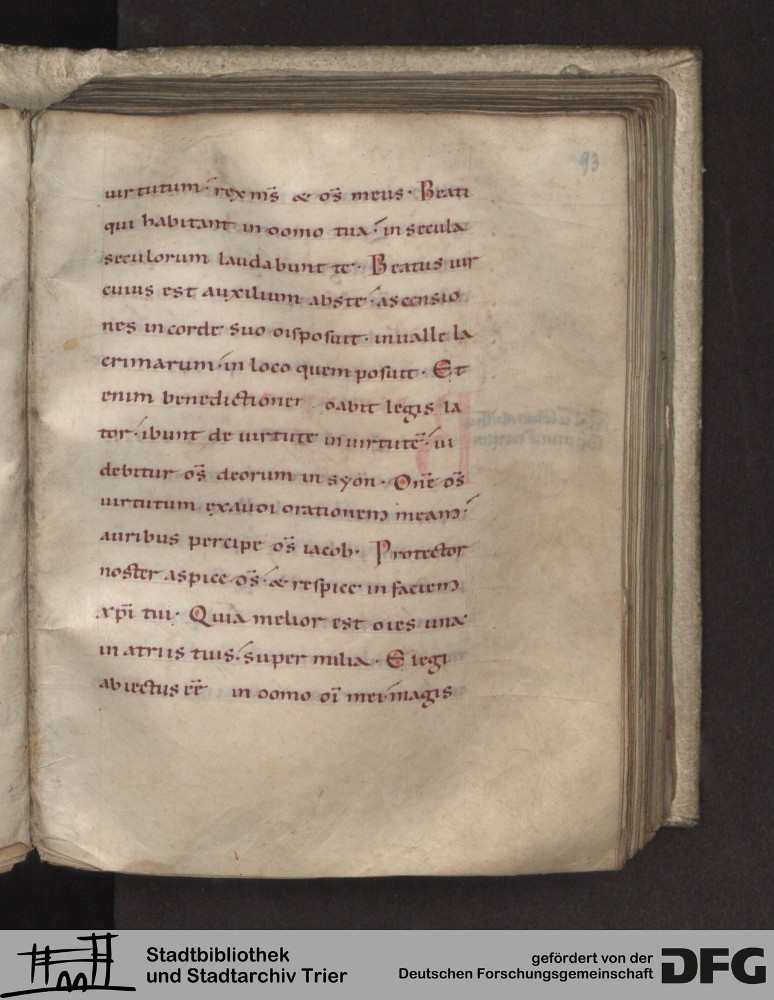 93
uirtutum · rex m̅s & d̅s meus · Beati
qui habitant in domo tua · in secula
seculorum laudabunt te · Beatus uir
cuius est auxilium abs te · ascensio
nes in corde suo disposuit · in ualle la
crimarum · in loco quem posuit · Et
enim benedictioner dabit legis la
tor · ibunt de uirtute in uirtute̅ · ui
debitur d̅s deorum in syon · Dn̅e d̅s
uirtutum exaudi orationem meam ·
auribus percipe d̅s iacob · Protector
noster aspice d̅s · & respice in faciem
xp̅i tui · Quia melior est dies una
in atriis tuis · super milia · Elegi
abiectus e̅e̅ in domo di̅ mei · magis
Stadtbibliothek
und Stadtarchiv Trier
gefördert von der
Deutschen Forschungsgemeinschaft
DFG